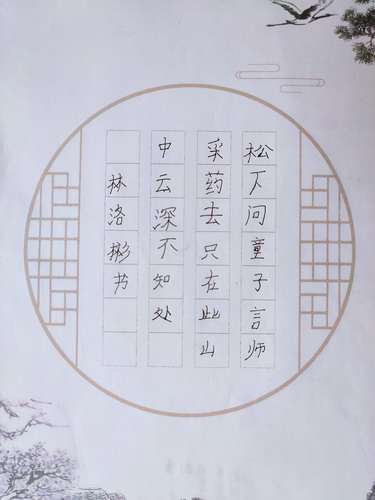 松下问童子言师
采药去只在此山
中云深不知处
林洛彬书